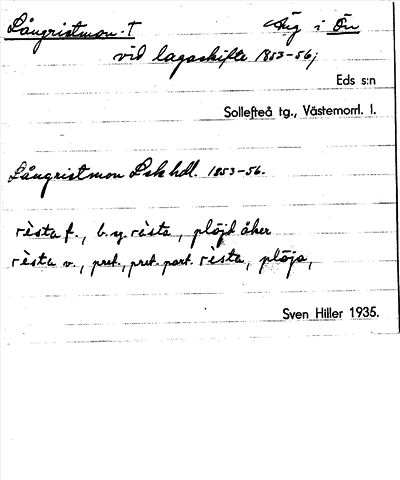 Långristmon. † Äg i Ön
vid lagaskifte 1853-56;
Eds s:n
Sollefteå tg., Västernorrl. l.
Långristmon Lsk hdl. 1853-56.
rista f., b. sg. rista, plöjd åker
rista v., pret., pret. part. rista, plöja,
Sven Hiller 1935.